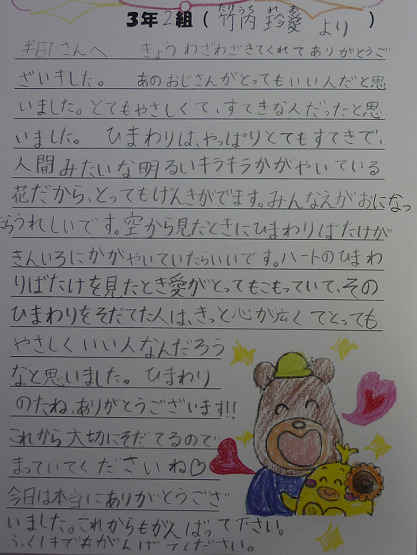 3年2組(竹内 玲愛 より)
たけうち れあ
半田さんへ きょうわざわざきてくれてありがとうご
ざいました。 あのおじさんがとってもいい人だと思
いました。とてもやさしくて、すてきな人だったと思
いました。 ひまわりは、やっぱりとてもすてきで、
人間みたいな明るいキラキラかがやいている
花だから、とってもげんきがでます。みんなえがおになっ
たらうれしいです。空から見たときにひまわりばたけが
きんいろにかがやいていたらいいです。ハートのひまわ
りばたけを見たとき愛がとってもこもっていて、その
ひまわりをそだてた人は、きっと心が広くてとっても
やさしくいい人なんだろう
なと思いました。 ひまわり
のたね、ありがとうございます!!
これから大切にそだてるので
まっていてくださいね♡
今日は本当にありがとうござ
いました。これからもがんばって下さい。
ふくしまでもがんばってください。